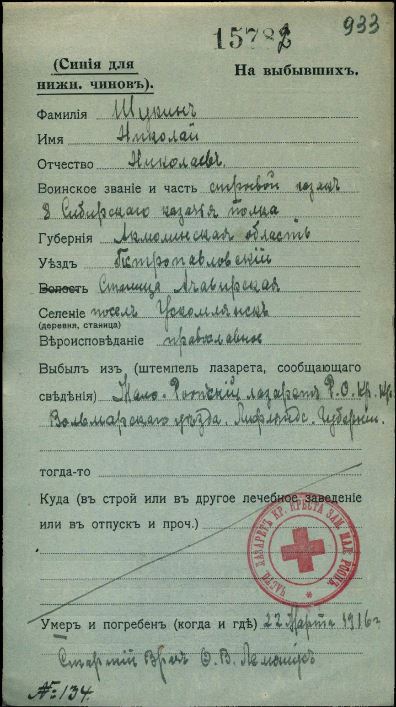 15782
933
(Синія для
нижн. чиновъ).
На выбывшихъ.
Фамилія Щукинъ
Имя Николай
Отчество Николаевъ.
Воинское званіе и часть строевой казакъ
8 Сибирскаго казачія полка
Губернія Акмолинская область
Уѣздъ Петропавловскій
Волость Станица
Селеніе посел.
(деревня, станица)
Вѣроисповѣданіе православное
Выбылъ изъ (штемпель лазарета, сообщающаго
свѣдѣнія) Мало- лазаретъ Р. О. Кр. Кр.
Вольмарскаго уѣзда. Лифляндс. Губерніи.
тогда-то
Куда (въ строй или въ другое лечебное заведеніе
или въ отпускъ и проч.)
ЛАЗАРЕТЪ КР. КРЕСТА
Умеръ и погребенъ (когда и гдѣ) 22 Марта 1916 г
Старшій Врач
№ 134.